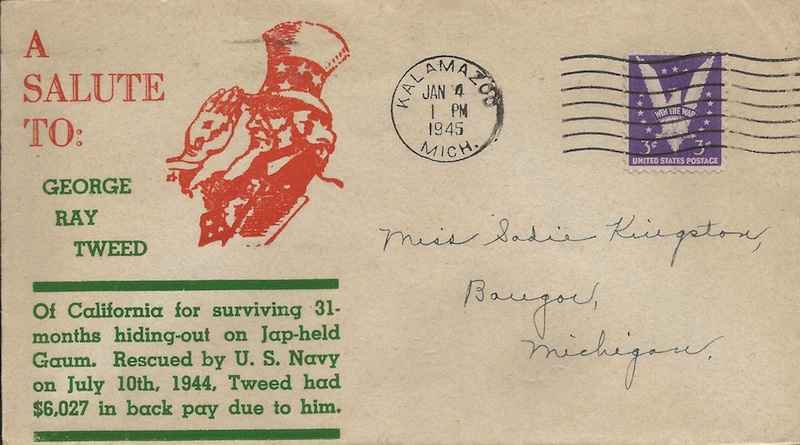 A
SALUTE
TO:
GEORGE
RAY
TWEED
Of California for surviving 31-
months hiding-out on Jap-held
Gaum. Rescued by U. S. Navy
on July 10th, 1944, Tweed had
$6,027 in back pay due to him.
KALAMAZOO
JAN 4
1 PM
1945
MICH.
WIN THE WAR
3¢ 3¢
UNITED STATES POSTAGE
Miss Sadie Kingston,
Bangor,
Michigan.